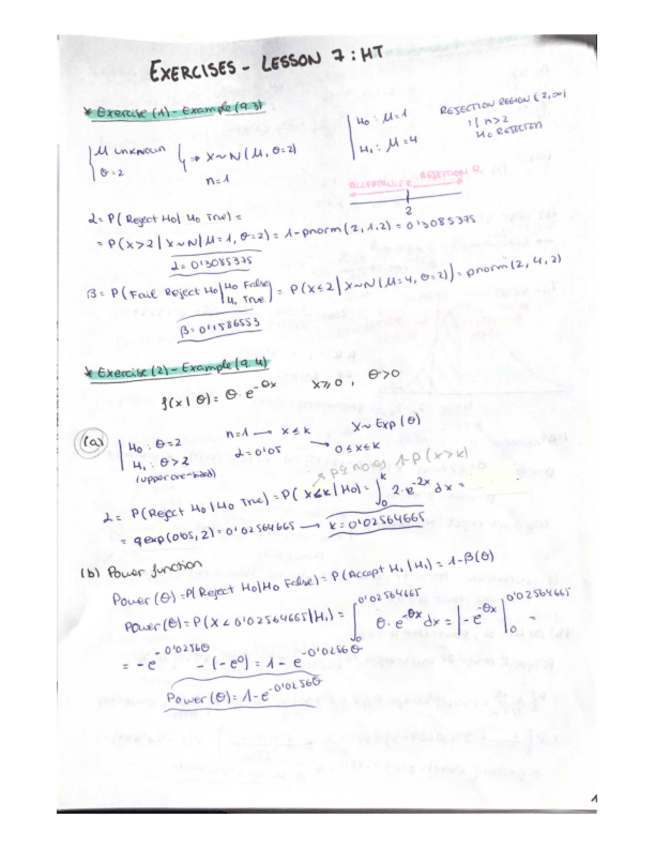 EXERCISES - LESSON 7: HT
* Exercise (1) - Example (9.3)
H0: μ=1
H1: μ=4
REJECTION REGION (2,∞)
if n>2
H0 REJECTED
μ unknown
σ=2
→ X~N(μ, σ=2)
n=1
ACCEPTANCE REJECTION R.
2
α= P( Reject H0| H0 True) =
= P(X>2 | X~N(μ=1, σ=2) = 1-pnorm(2,1,2) = 0'3085375
α= 0'3085375
β= P(Fail Reject H0| H0 False / H1 True) = P(X≤2 | X~N(μ=4, σ=2)) = pnorm(2,4,2)
β= 0'1586553
* Exercise (2) - Example (9.4)
f(x|θ)= θ·e^-θx X≥0, θ>0
(a) H0: θ=2
H1: θ>2
(upper one-sided)
n=1 → X≤k X~Exp(θ)
α=0'05 → 0≤X≤k
1-P(x>k)
α= P(Reject H0 | H0 True) = P(X≤k | H0) = ∫0^k 2·e^-2x dx =
= qexp(005,2) = 0'02564665 → k=0'02564665
(b) Power function
Power(θ)=P(Reject H0|H0 False) = P(Accept H1|H1) = 1-β(θ)
Power(θ)= P(X<0'02564665|H1) = ∫0^0'02564665 θ·e^-θx dx = |-e^-θx|0^0'02564665 =
= -e^-0'0256θ -(-e^0) = 1-e^-0'0256θ
Power(θ)= 1-e^-0'0256θ
1